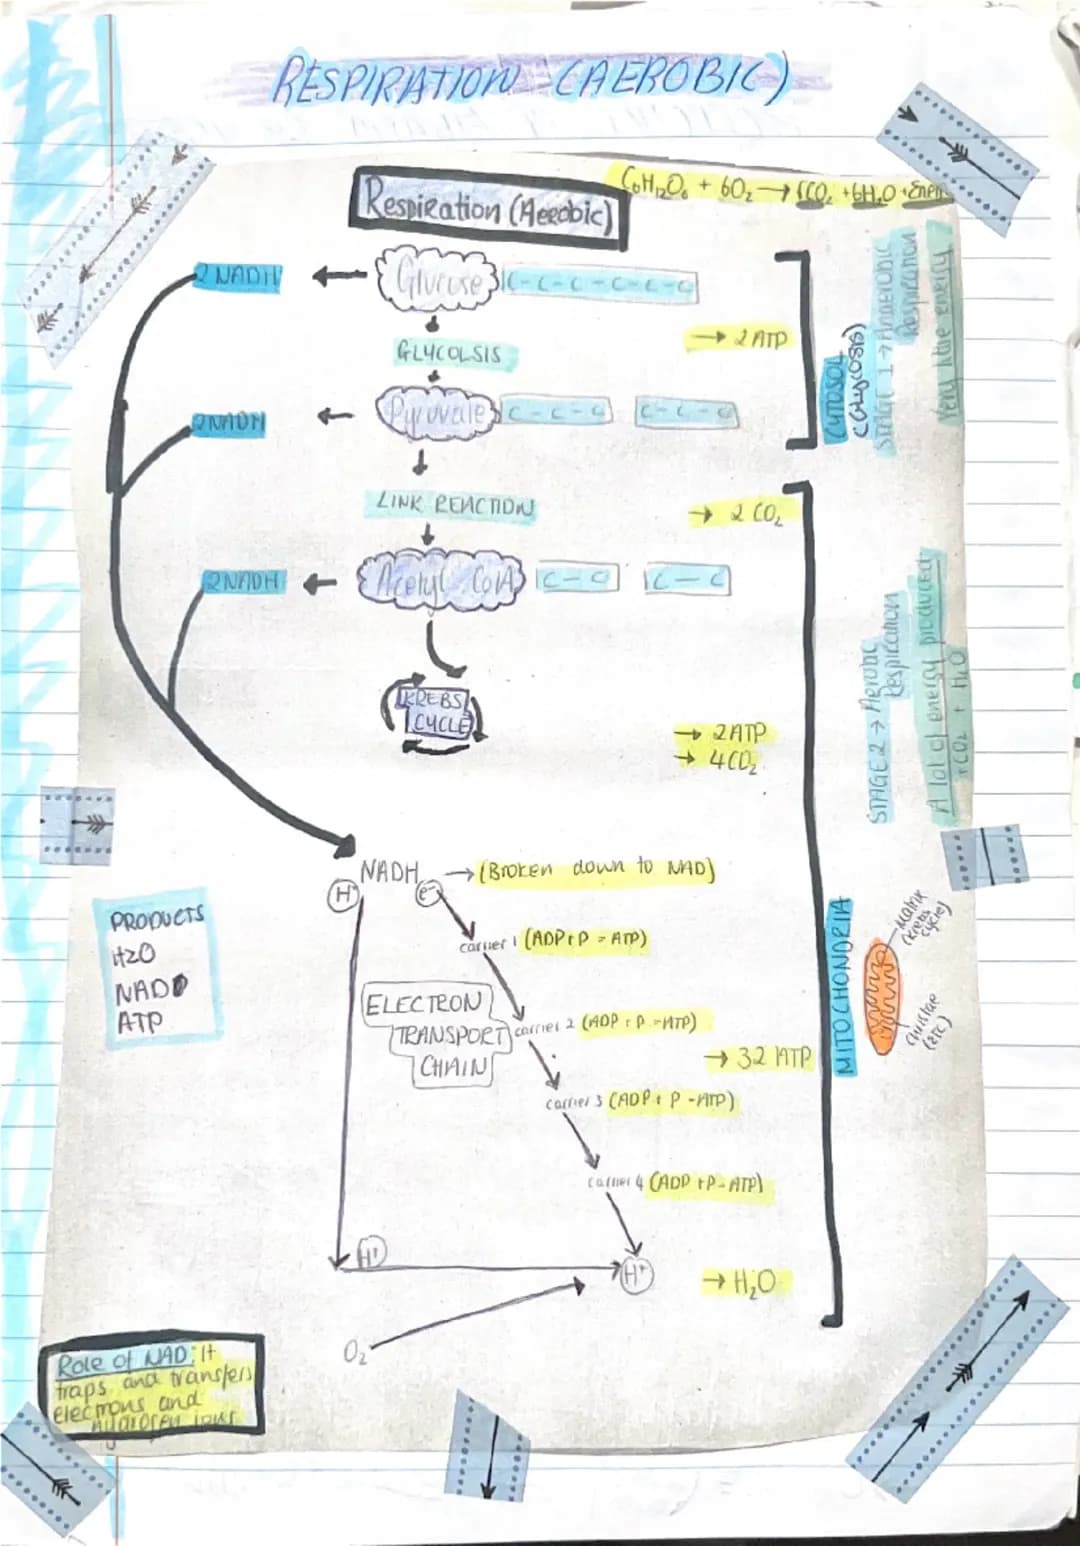 RESPIRATION (AEROBIC)
C6H12O6 + 6O2 → 6CO2 + 6H2O +
Respiration (Aerobic)
2 NADH ← Glucose C-C-C-C-C-C
→ 2 ATP
GLYCOLSIS
2NADH ← Pyruvate C-C-C C-C-C
CYTOSOL
STAGE 1 → Anaerobic
Respiration
Very little energy
LINK REACTION
→ 2 CO2
2NADH ← Acetyl CoA C-C C-C
KREBS
CYCLE
→ 2ATP
→ 4CO2
STAGE 2 → Aerobic
Respiration
A lot of energy produced
+CO2 + H2O
NADH → (Broken down to NAD)
H+ e-
carrier 1 (ADP+P = ATP)
PRODUCTS
H2O
NAD
ATP
ELECTRON
TRANSPORT
CHAIN
carrier 2 (ADP + P = ATP)
→ 32 ATP
carrier 3 (ADP + P - ATP)
carrier 4 (ADP +P - ATP)
MITOCHONDRIA
Matrix
(Krebs
cycle)
(ETC)
H+
H+
→ H2O
O2
Role of NAD: It
traps and transfers
electrons and
hydrogen ions